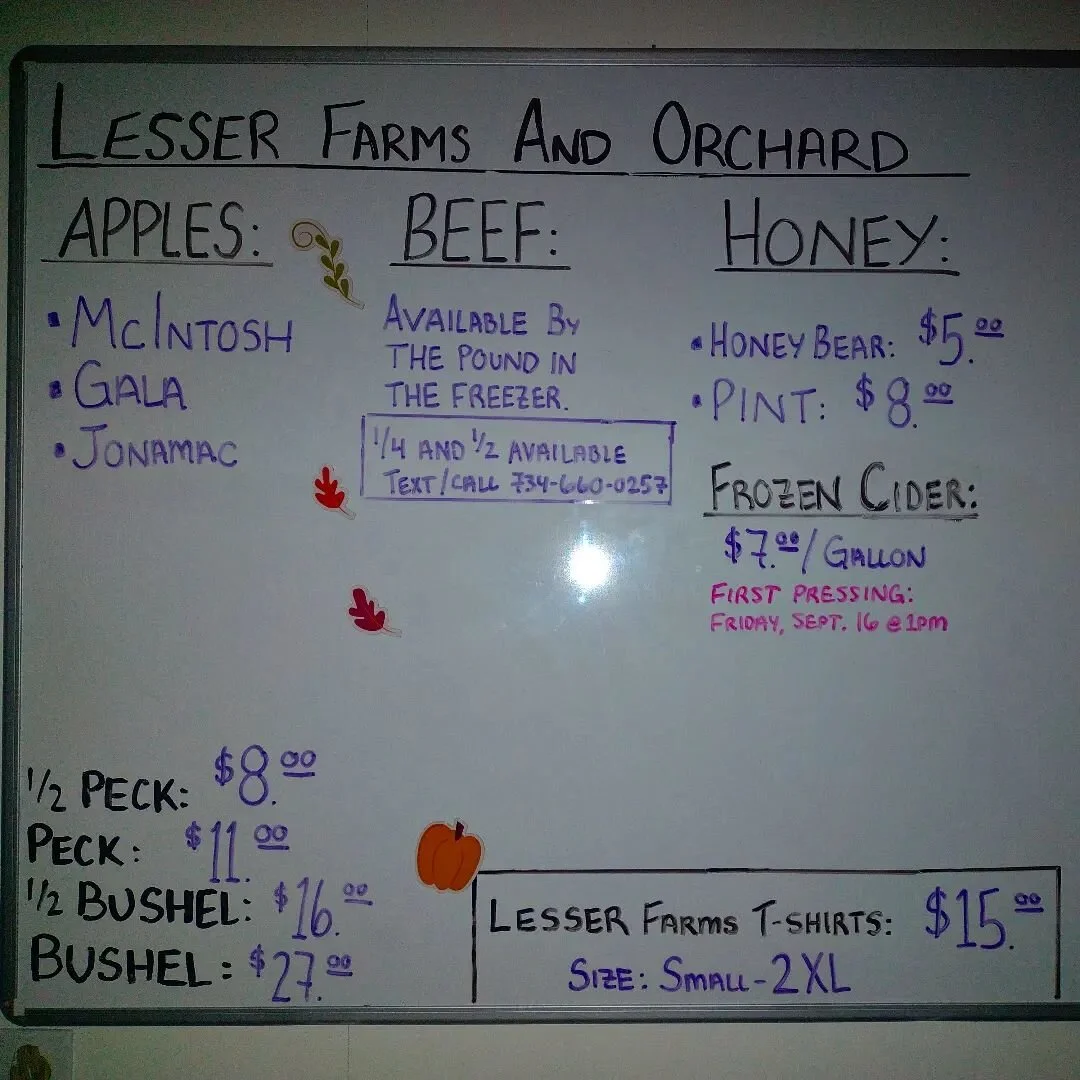 LESSER FARMS AND ORCHARD
APPLES:
• McINTOSH
• GALA
• JONAMAC
1/2 PECK: $8.00
PECK: $11.00
1/2 BUSHEL: $16.00
BUSHEL: $27.00
BEEF:
AVAILABLE BY
THE POUND IN
THE FREEZER.
1/4 AND 1/2 AVAILABLE
TEXT/CALL 734-660-0257
HONEY:
• HONEY BEAR: $5.00
• PINT: $8.00
FROZEN CIDER:
$7.00/GALLON
FIRST PRESSING:
FRIDAY, SEPT. 16 @ 1PM
LESSER FARMS T-SHIRTS: $15.00
SIZE: SMALL-2XL